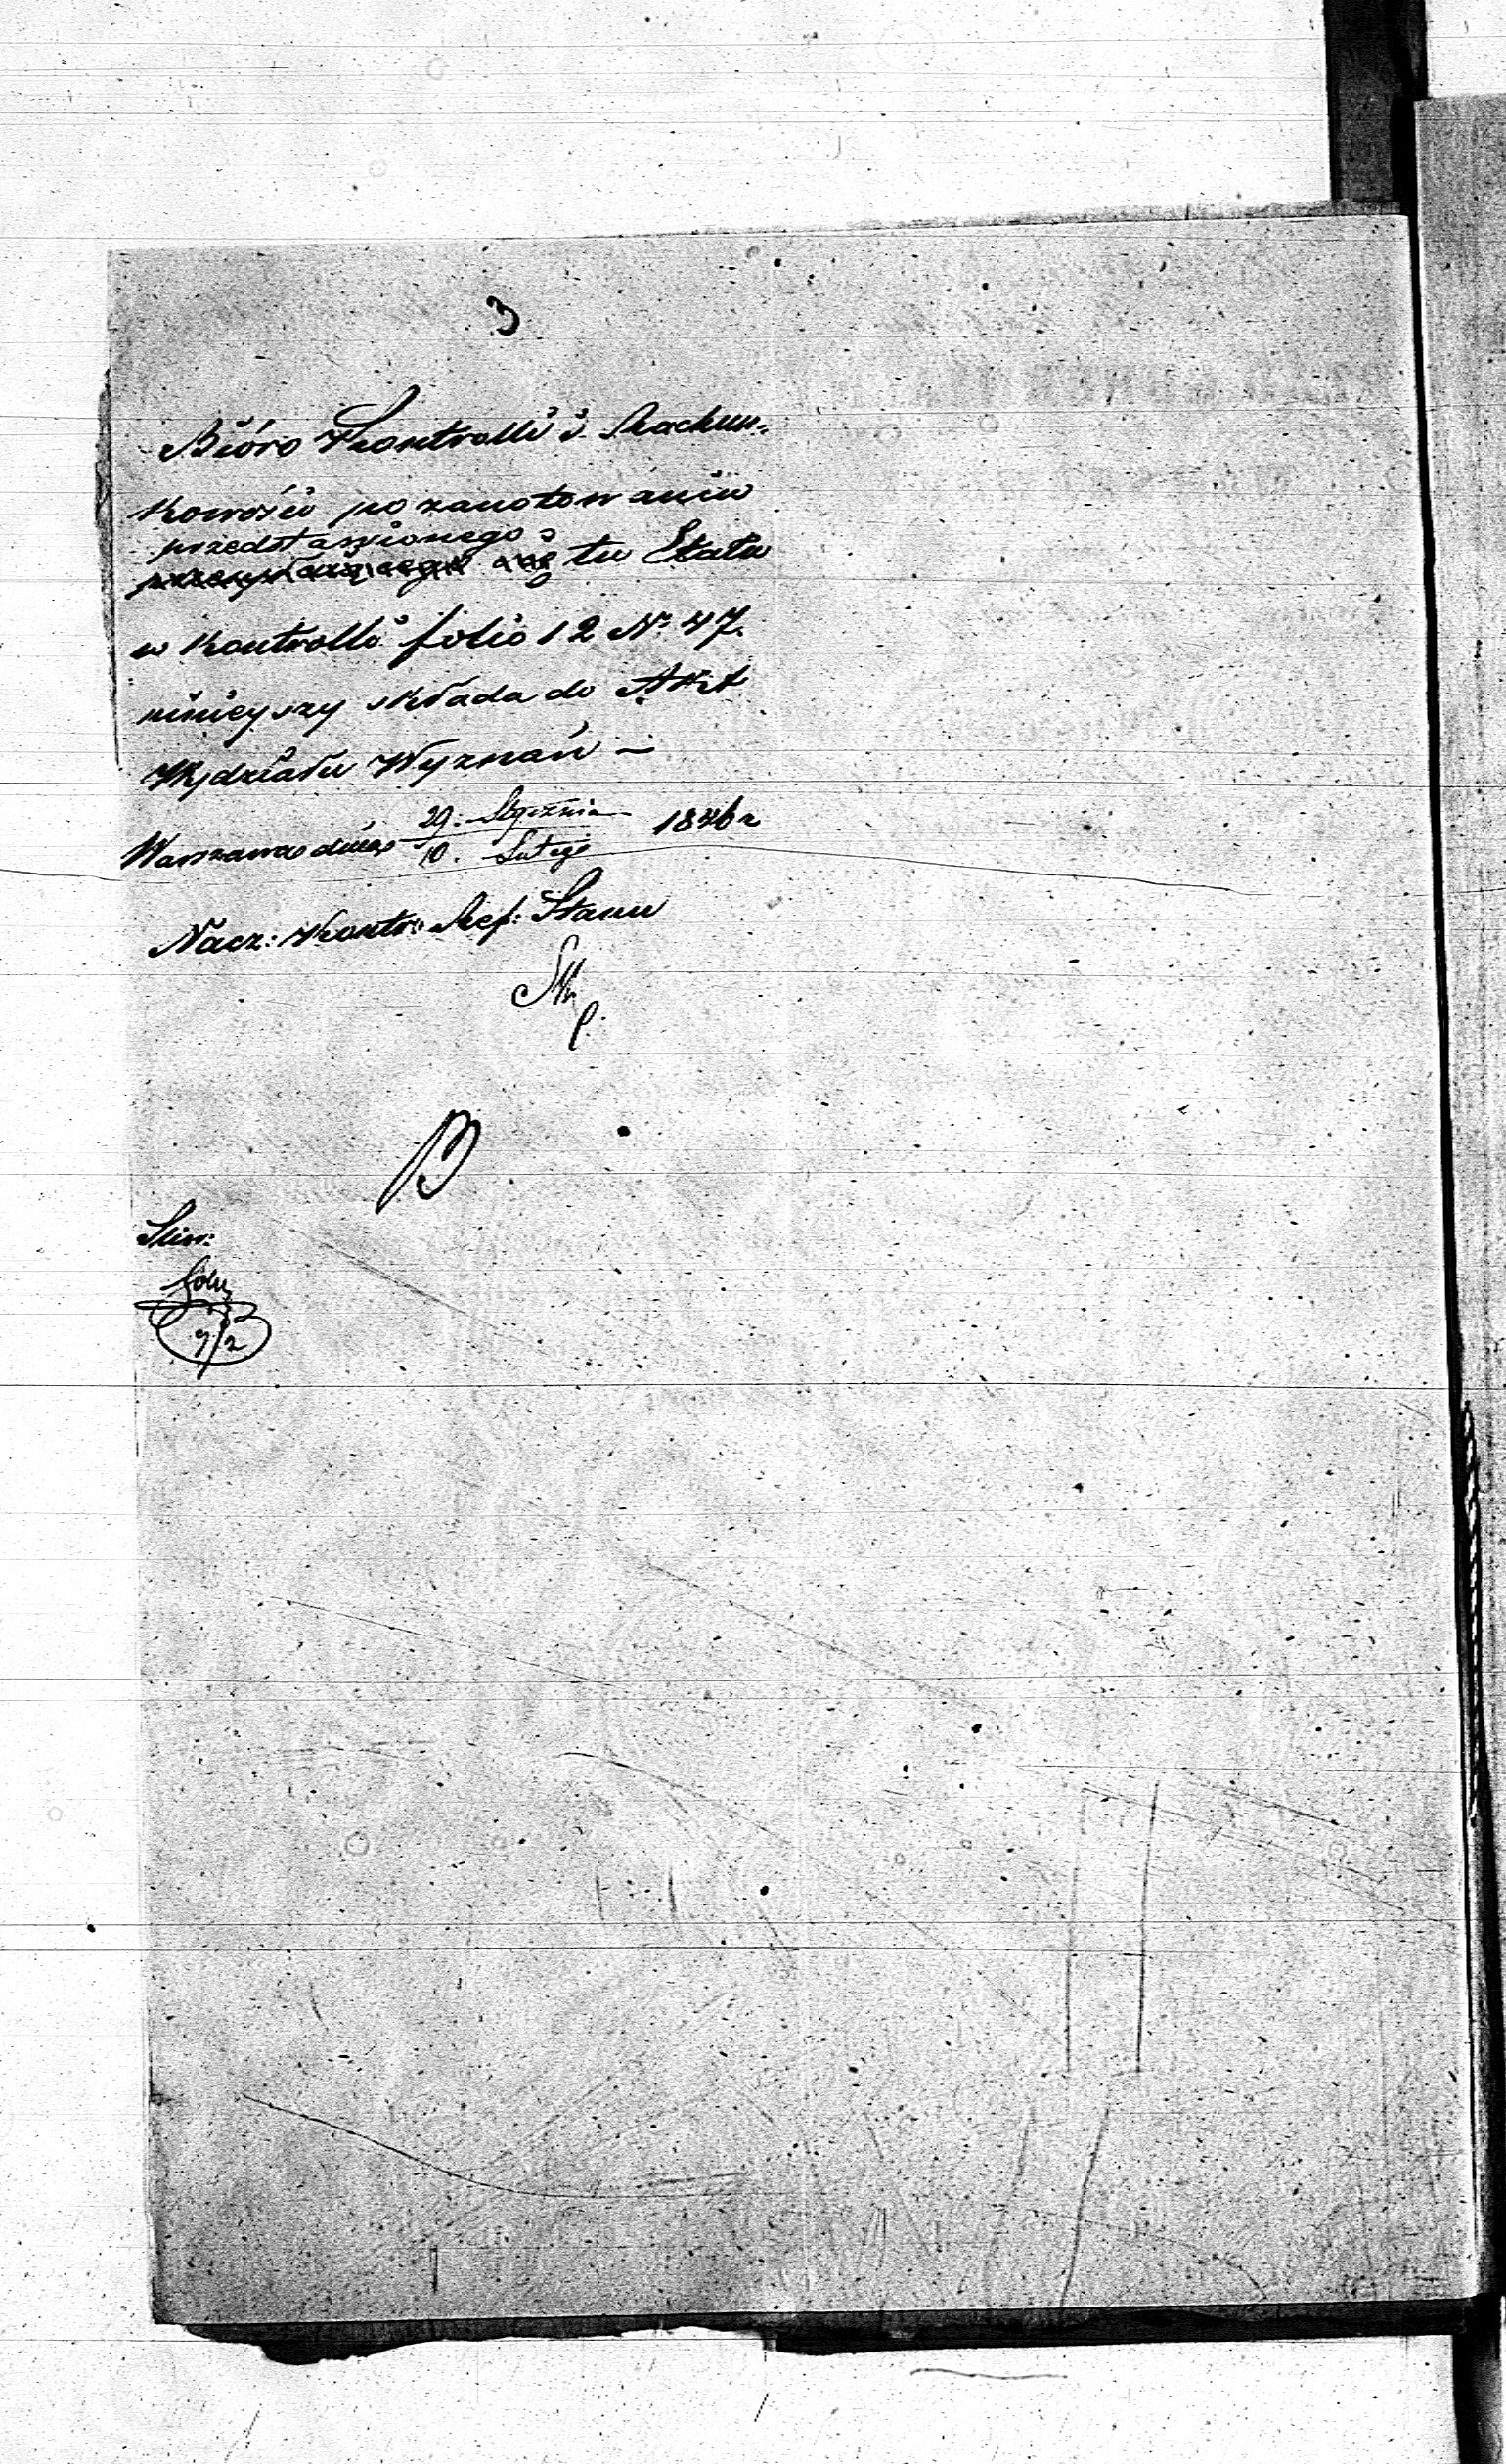 3
Bióro Kontrolli i Rachun-
kowości po zanotowaniu
przedstawionego
tu Etatu
w Kontrolli folio 12 Nº 47.
niniejszy składa do Akt
Wydziału Wyznań –
Warszawa dnia 29. Stycznia / 10. Lutego 1846 r
Nacz: Kontr: Ref: Stanu
9/2